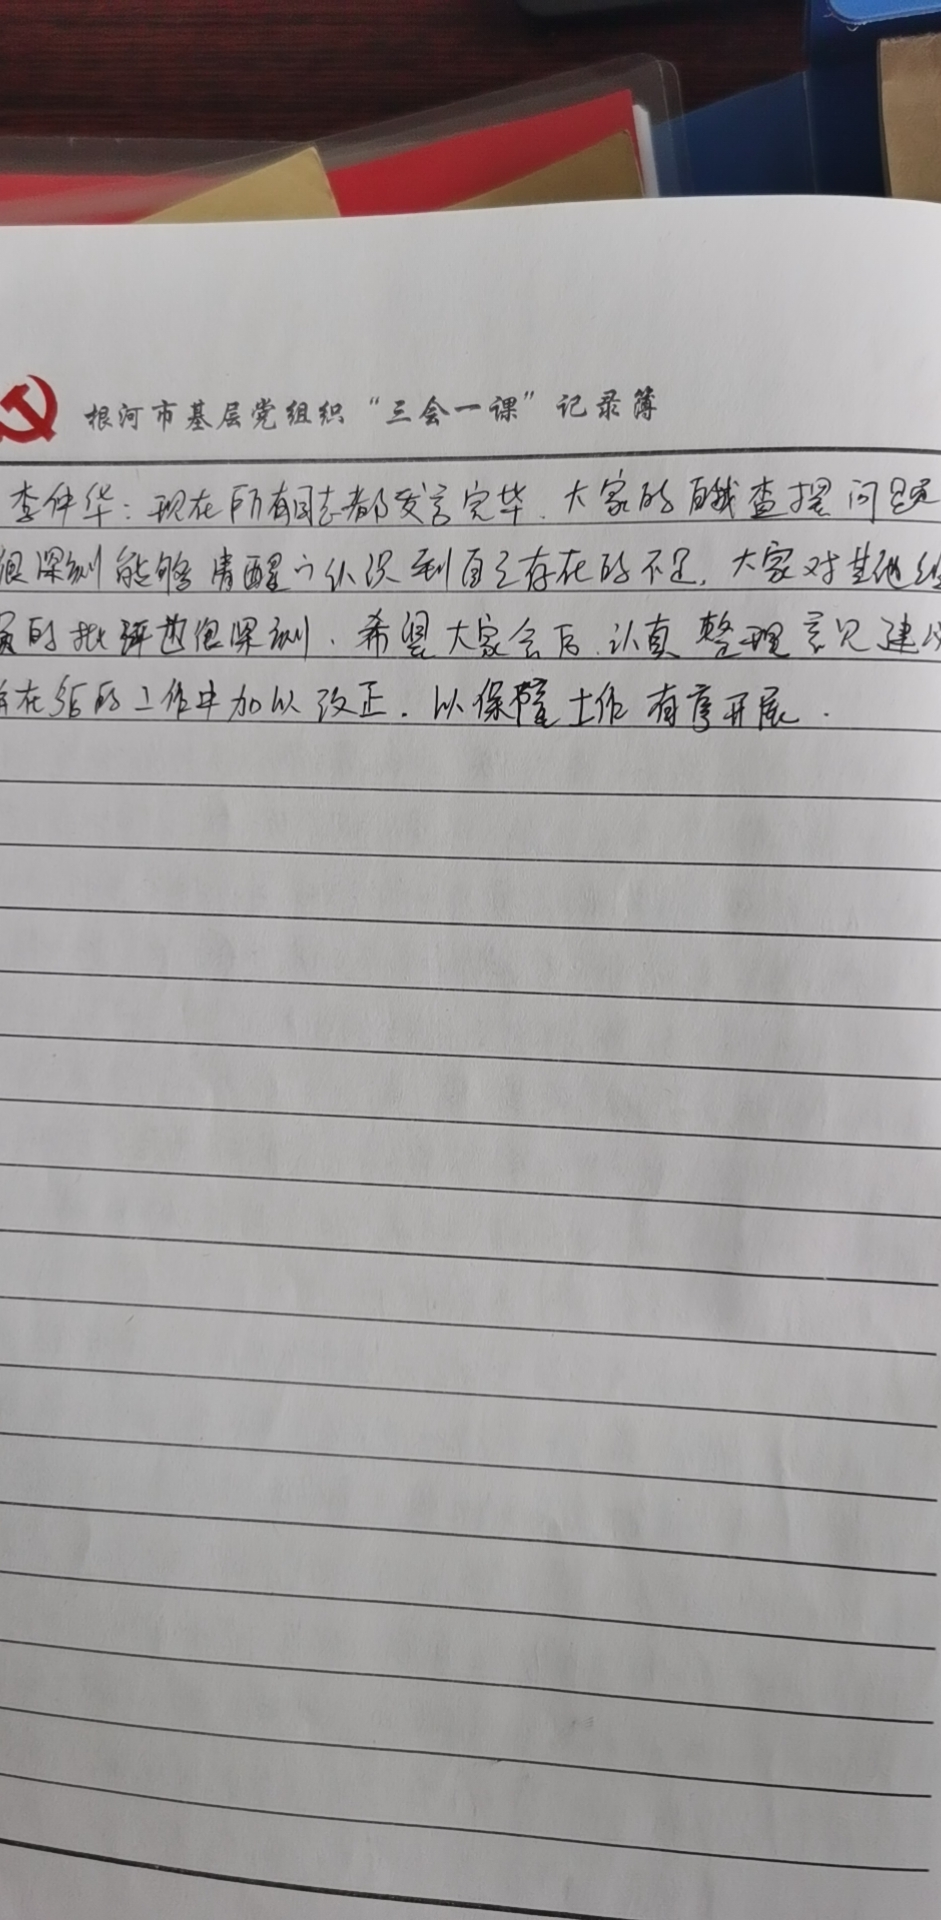 根河市基层党组织“三会一课”记录簿
李仲华：现在所有同志都发言完毕．大家的自我查摆问题
很深刻能够清醒的认识到自己存在的不足．大家对其他组
员的批评也很深刻．希望大家会后．认真整理意见建议
并在今后的工作中加以改正．以保障工作有序开展．